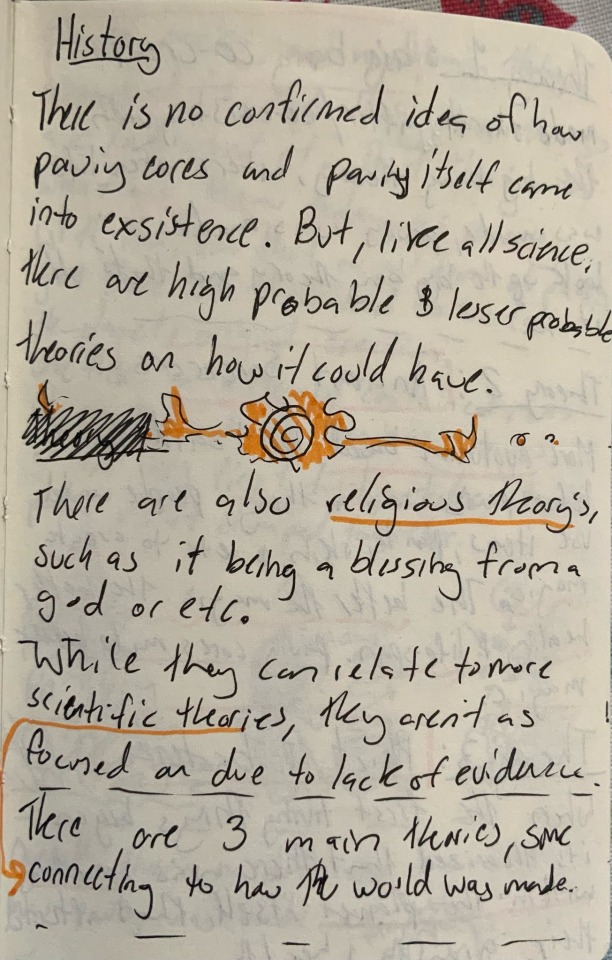 History
There is no confirmed idea of how
paviy cores and paviy itself came
into exsistence. But, like all science,
there are high probable & lesser probable
theories on how it could have.
There are also religious theory's,
such as it being a blessing from a
god or etc.
While they can relate to more
scientific theories, they aren't as
focused on due to lack of evidence.
There are 3 main theories, some
connecting to how the world was made.